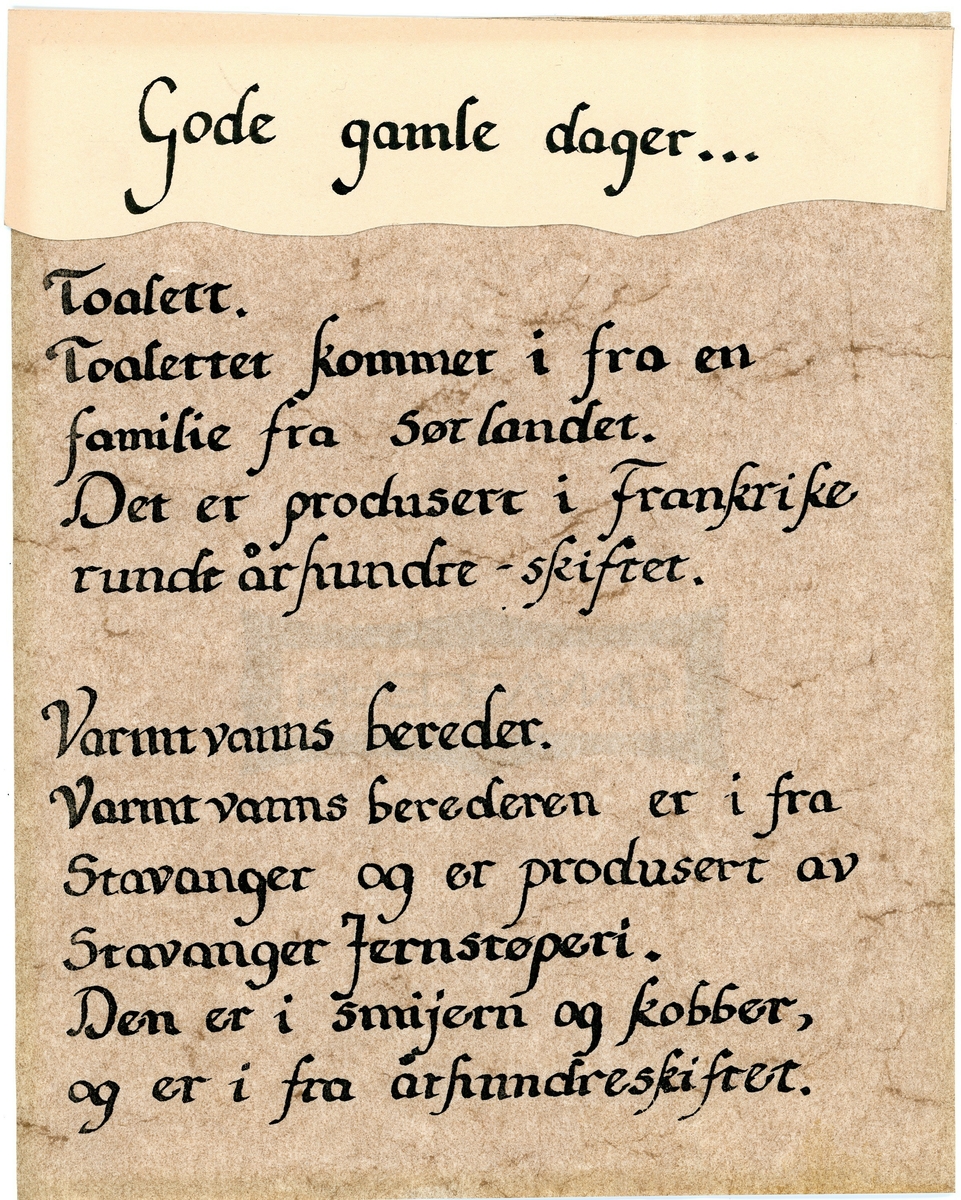 Gode gamle dager...
Toalett.
Toalettet kommer i fra en
familie fra Sørlandet.
Det er produsert i Frankrike
rundt århundre-skiftet.
Varmtvanns bereder.
Varmtvanns berederen er i fra
Stavanger og er produsert av
Stavanger Jernstøperi.
Den er i smijern og kobber,
og er i fra århundreskiftet.